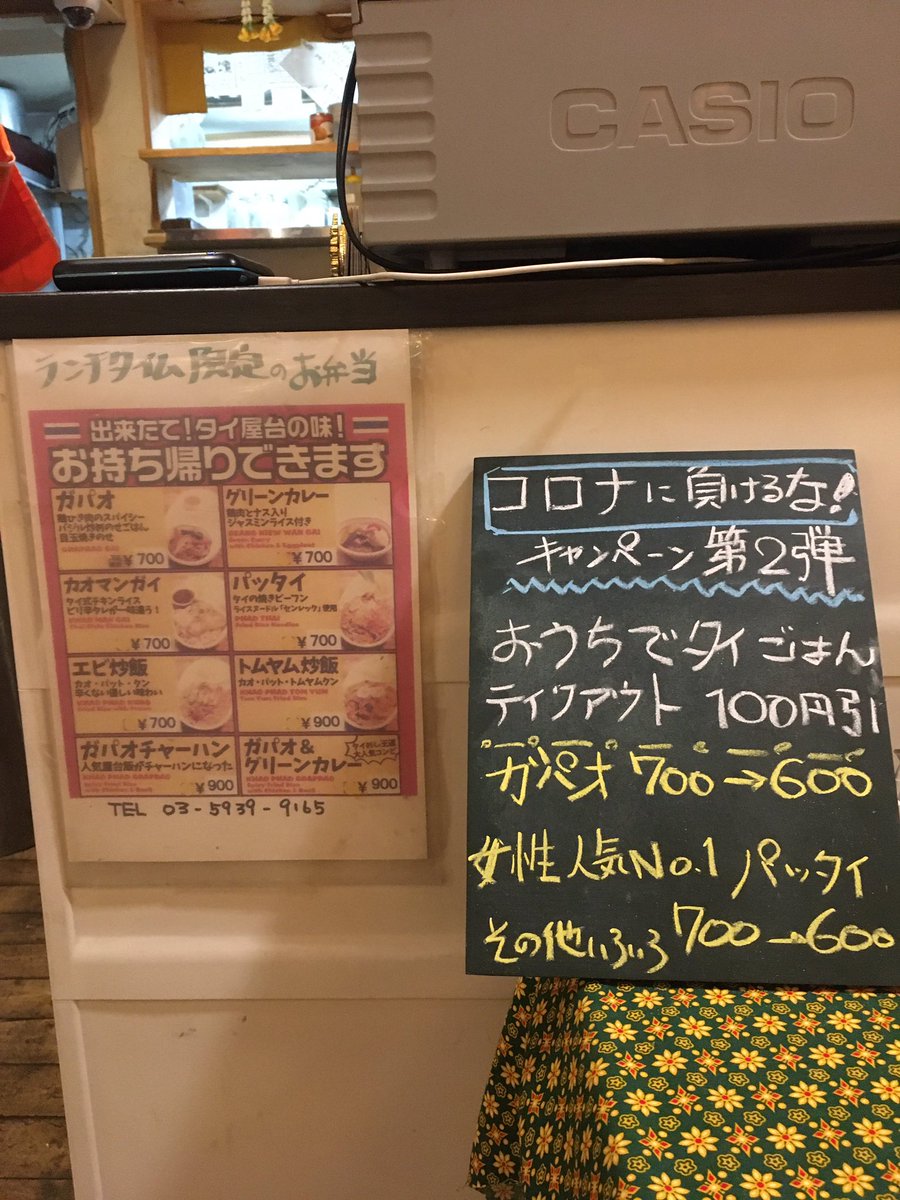 CASIO
ランチタイム限定のお弁当
出来たて!タイ屋台の味!
お持ち帰りできます
ガパオ
鶏ひき肉のスパイシー
バジル炒めのせごはん
目玉焼きのせ
GRAPRAO GAI
¥700
グリーンカレー
鶏肉とナス入り
ジャスミンライス付き
GEANG KIEW WAN GAI
Green Curry
with Chicken & Eggplant
¥700
カオマンガイ
タイ式チキンライス
ピリ辛タレが一味違う!
KHAO MAN GAI
Thai Style Chicken Rice
¥700
パッタイ
タイの焼きビーフン
ライスヌードル「センレック」使用
PHAD THAI
Fried Rice Noodles
¥700
エビ炒飯
カオ・パット・クン
辛くない優しい味わい
KHAO PHAD KUNG
Fried Rice with Prawn
¥700
トムヤム炒飯
カオ・パット・トムヤムクン
KHAO PHAD TOM YUM
Tom Yum Fried Rice
¥900
ガパオチャーハン
人気屋台飯がチャーハンになった
KHAO PHAD GRAPRAO
¥900
ガパオ&
グリーンカレー
KHAO PHAD GRAPRAO
¥900
TEL 03-5939-9165
コロナに負けるな!
キャンペーン第2弾
おうちでタイごはん
テイクアウト 100円引
ガパオ 700→600
女性人気No.1 パッタイ
その他いろいろ 700→600